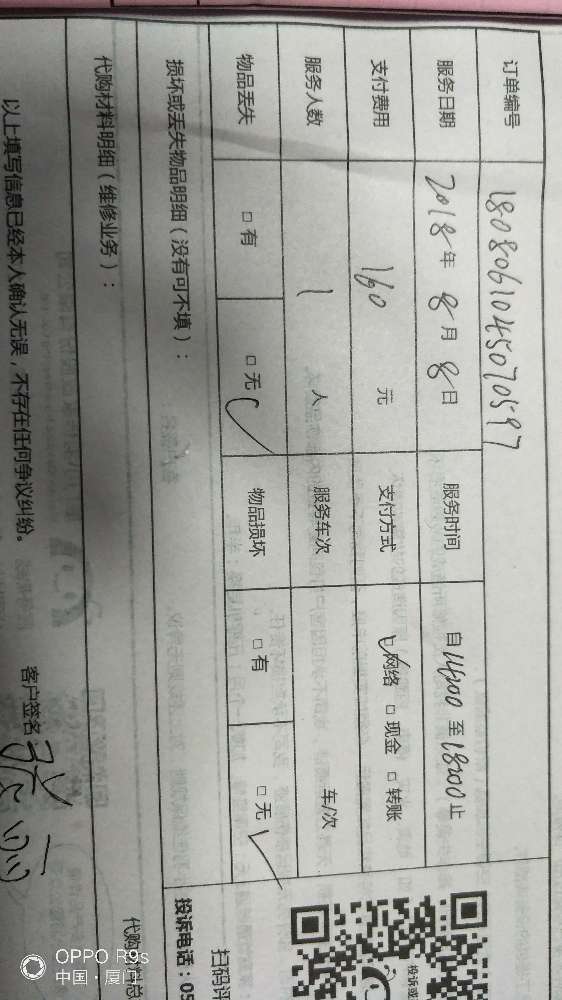 订单编号 1808061045070597
服务日期 2018年8月8日 服务时间 自14:00至18:00止
支付费用 160元 支付方式 ☑网络 □现金 □转账
服务人数 1人 服务车次 车/次
物品丢失 □有 □无✓ 物品损坏 □有 □无✓
损坏或丢失物品明细(没有可不填):
代购材料明细(维修业务):
以上填写信息已经本人确认无误,不存在任何争议纠纷。 客户签名
投诉或
扫码评
投诉电话:05
代购材料总
OPPO R9s
中国·厦门